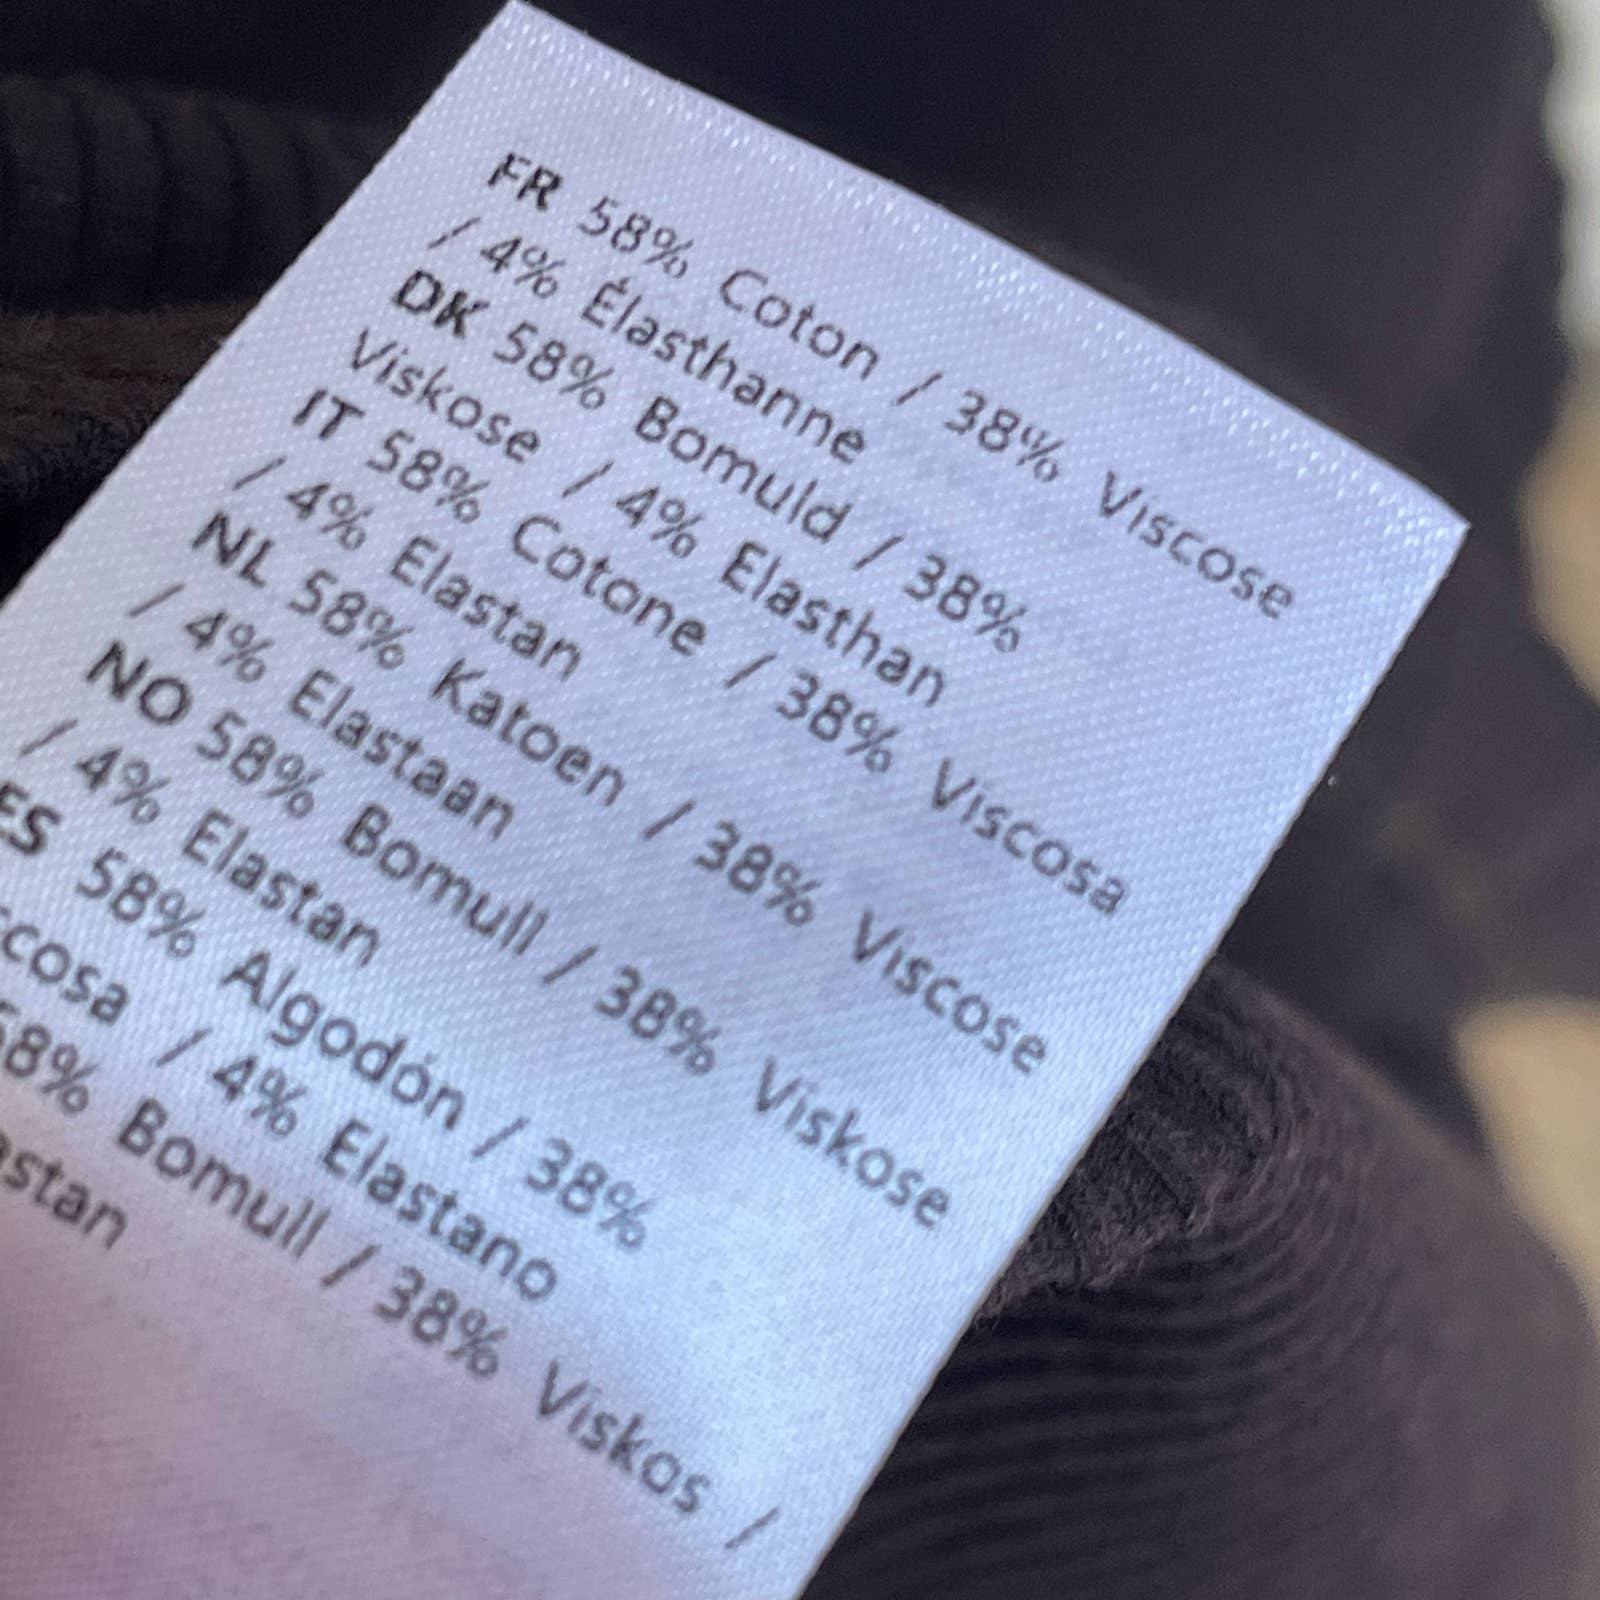 FR 58% Coton / 38% Viscose
/ 4% Élasthanne
DK 58% Bomuld / 38%
Viskose / 4% Elasthan
IT 58% Cotone / 38% Viscosa
/ 4% Elastan
NL 58% Katoen / 38% Viscose
/ 4% Elastaan
NO 58% Bomull / 38% Viskose
/ 4% Elastan
ES 58% Algodón / 38%
scosa / 4% Elastano
58% Bomull / 38% Viskos /
astan